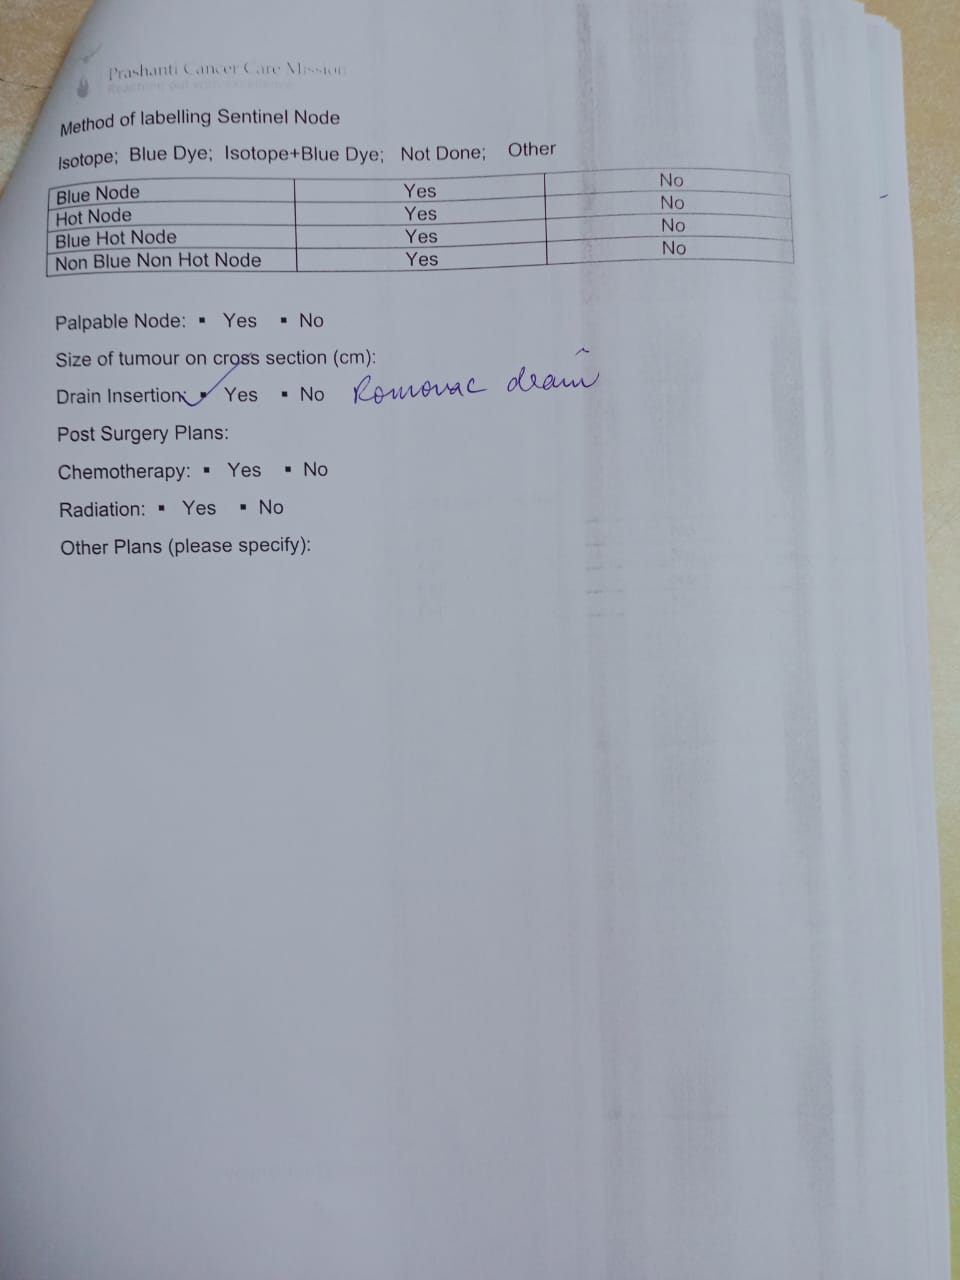 Prashanti Cancer Care Mission
Reaching out with excellence
Method of labelling Sentinel Node
Isotope; Blue Dye; Isotope+Blue Dye; Not Done; Other
Blue Node Yes No
Hot Node Yes No
Blue Hot Node Yes No
Non Blue Non Hot Node Yes No
Palpable Node: ▪ Yes ▪ No
Size of tumour on cross section (cm):
Drain Insertion: ✓ ▪ Yes ▪ No Romovac drain
Post Surgery Plans:
Chemotherapy: ▪ Yes ▪ No
Radiation: ▪ Yes ▪ No
Other Plans (please specify):